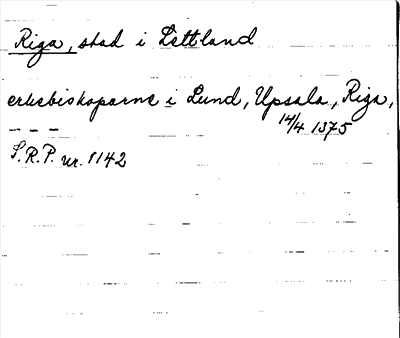 Riga, stad i Lettland
erkebiskoparne i Lund, Upsala, Riga,
– – – 14/4 1375
S.R.P. nr. 1142